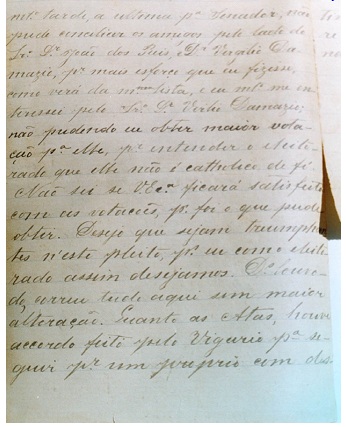 mto tarde, a ultima pa Senador, não
pude conciliar os amigos pelo lado do
Sr. Dr. João dos Reis, e Dr. Vergilio Da-
mazio, pr. mais esforço que eu fizesse,
como verá da mma lista, e eu mto. me in-
teressei pelo Sr. Dr. Verlio Damazio;
não pudendo eu obter maior vota-
ção pa elle, pr. intender o eleito-
rado que elle não é catholico de fé.
Não sei se V.Exa. ficará satisfeito
com as votações, pr. foi o que pude
obter. Desejo que sejam triumphan
tes n'este pleito, pr. eu como eleito
rado assim desejamos. D. Louvo-
do, correu tudo aqui sem maior
alteração. Quanto as Atas, houve
accordo feito pelo Vigario pa se-
guir pr. um proprio com des-